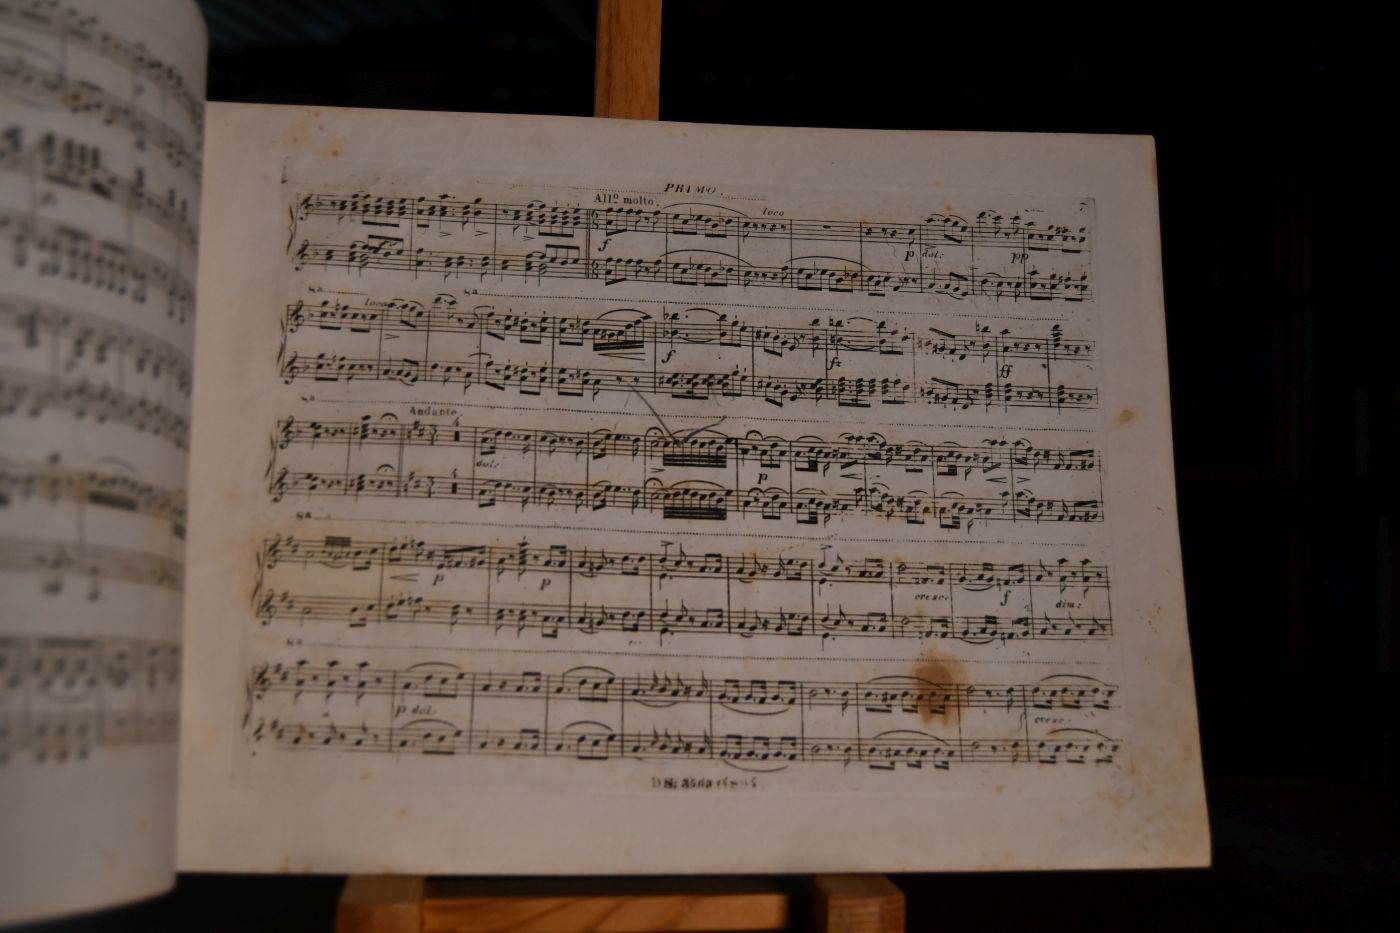 PRIMO.
All? molto.
loco
f
p dol:
pp
8a
loco
8a
f
fz
ff
8a
Andante.
4
dol:
p
4
8a
p
p
cresc:
f
dim:
8a
p dol:
cresc: